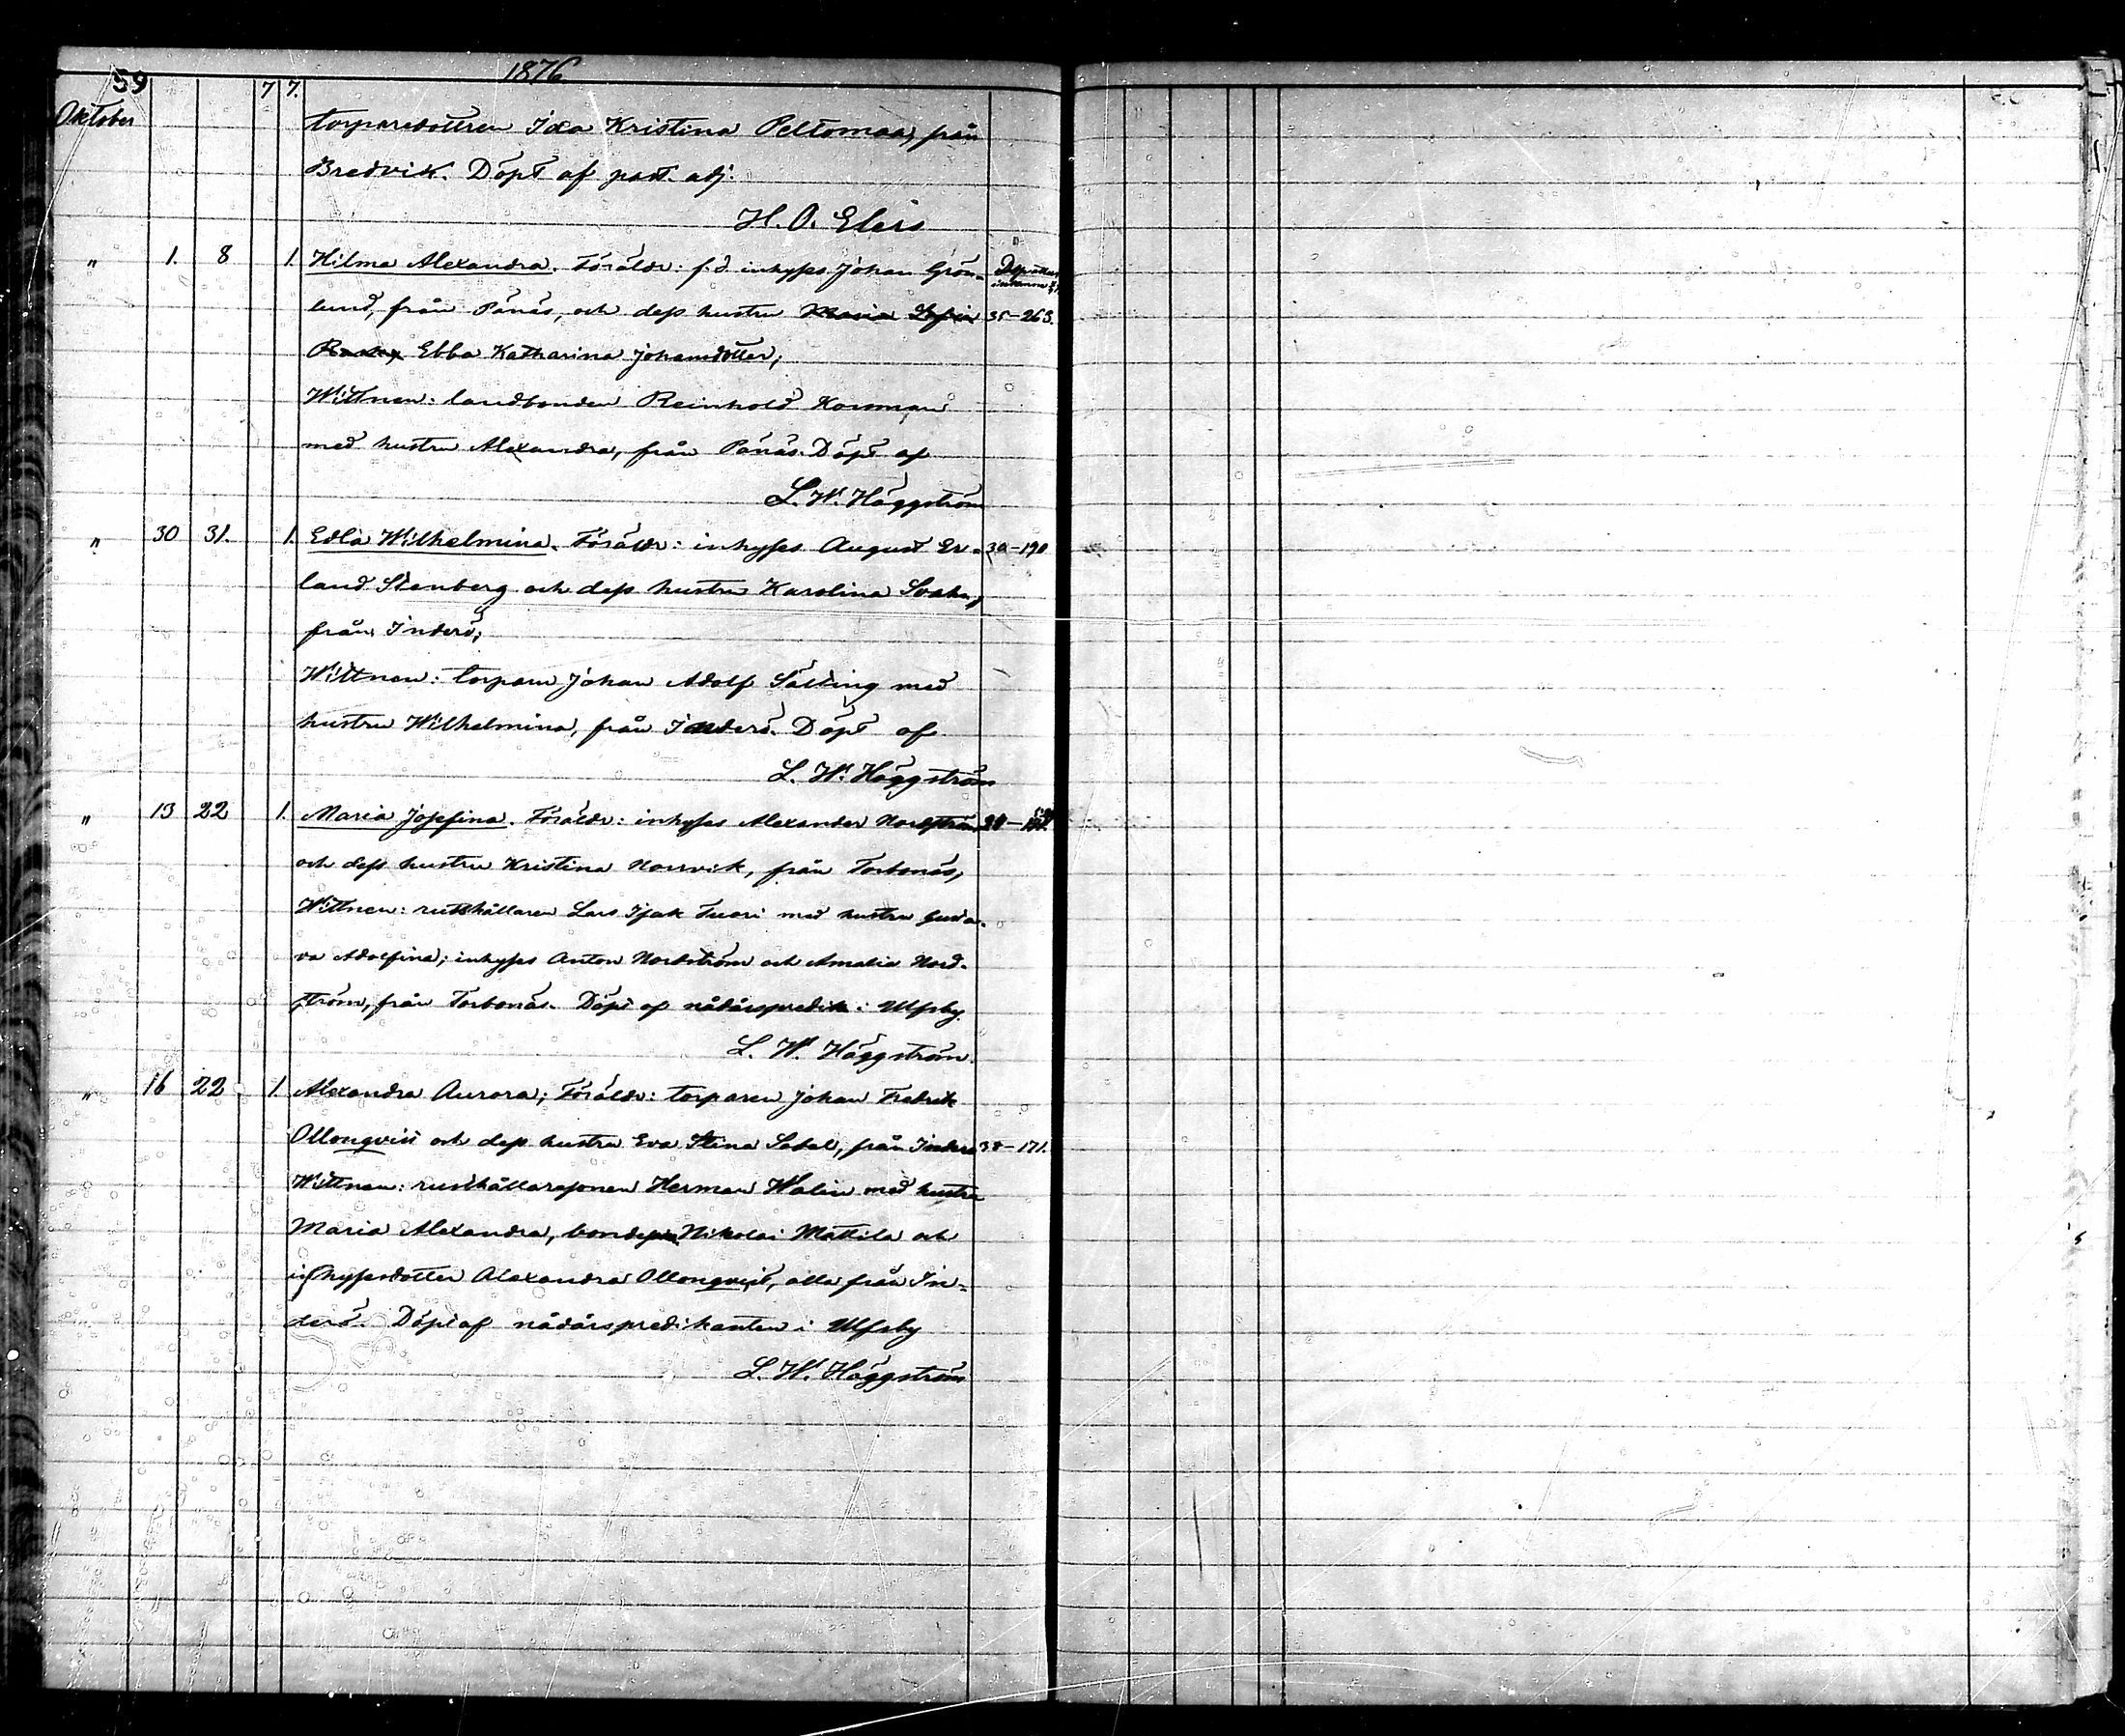 59 1876
7 7.
Oktober torparedottren Ida Kristina Peltomaa, från
Bredvik. Döpt af past. adj.
H. O. Eleis
" 1. 8 1. Hilma Alexandra. Föräldr: f.d. inhyses Johan Grön-
lund, från Panäs, och dess hustru Maria Sofia 35-263.
Ebba Katharina Johansdotter;
Wittnen: landbonden Reinhold Korsman
med hustru Alexandra, från Panäs. Döpt af
L. W. Häggström
" 30 31. 1. Edla Wilhelmina. Föräldr: inhyses August Er- 30-190
land Stenberg och dess hustru Karolina Svahn,
från Inderö;
Wittnen: torparn Johan Adolf Sälling med
hustru Wilhelmina, från Inderö. Döpt af
L. W. Häggström
" 13 22 1. Maria Josefina. Föräldr: inhyses Alexander Nordström
och dess hustru Kristina Norrvik, från Torbonäs,
Wittnen: rusthållaren Lars Isak Tuori med hustru Gusta-
va Adolfina; inhyses Anton Nordström och Amalia Nord-
ström, från Torbonäs. Döpt af nådårspredik. i Ulfsby.
L. W. Häggström.
" 16 22 1. Alexandra Aurora; Föräldr: torparen Johan Fredrik
Ollonqvist och dess hustru Eva Stina Sabel, från Inderö 38-171.
Wittnen: rusthållaresonen Herman Walin med hustru
Maria Alexandra, bondeson Nikolai Mattila och
inhysesdotter Alexandra Ollonqvist, alla från In-
derö. Döpt af nådårspredikanten i Ulfsby
L. W. Häggström